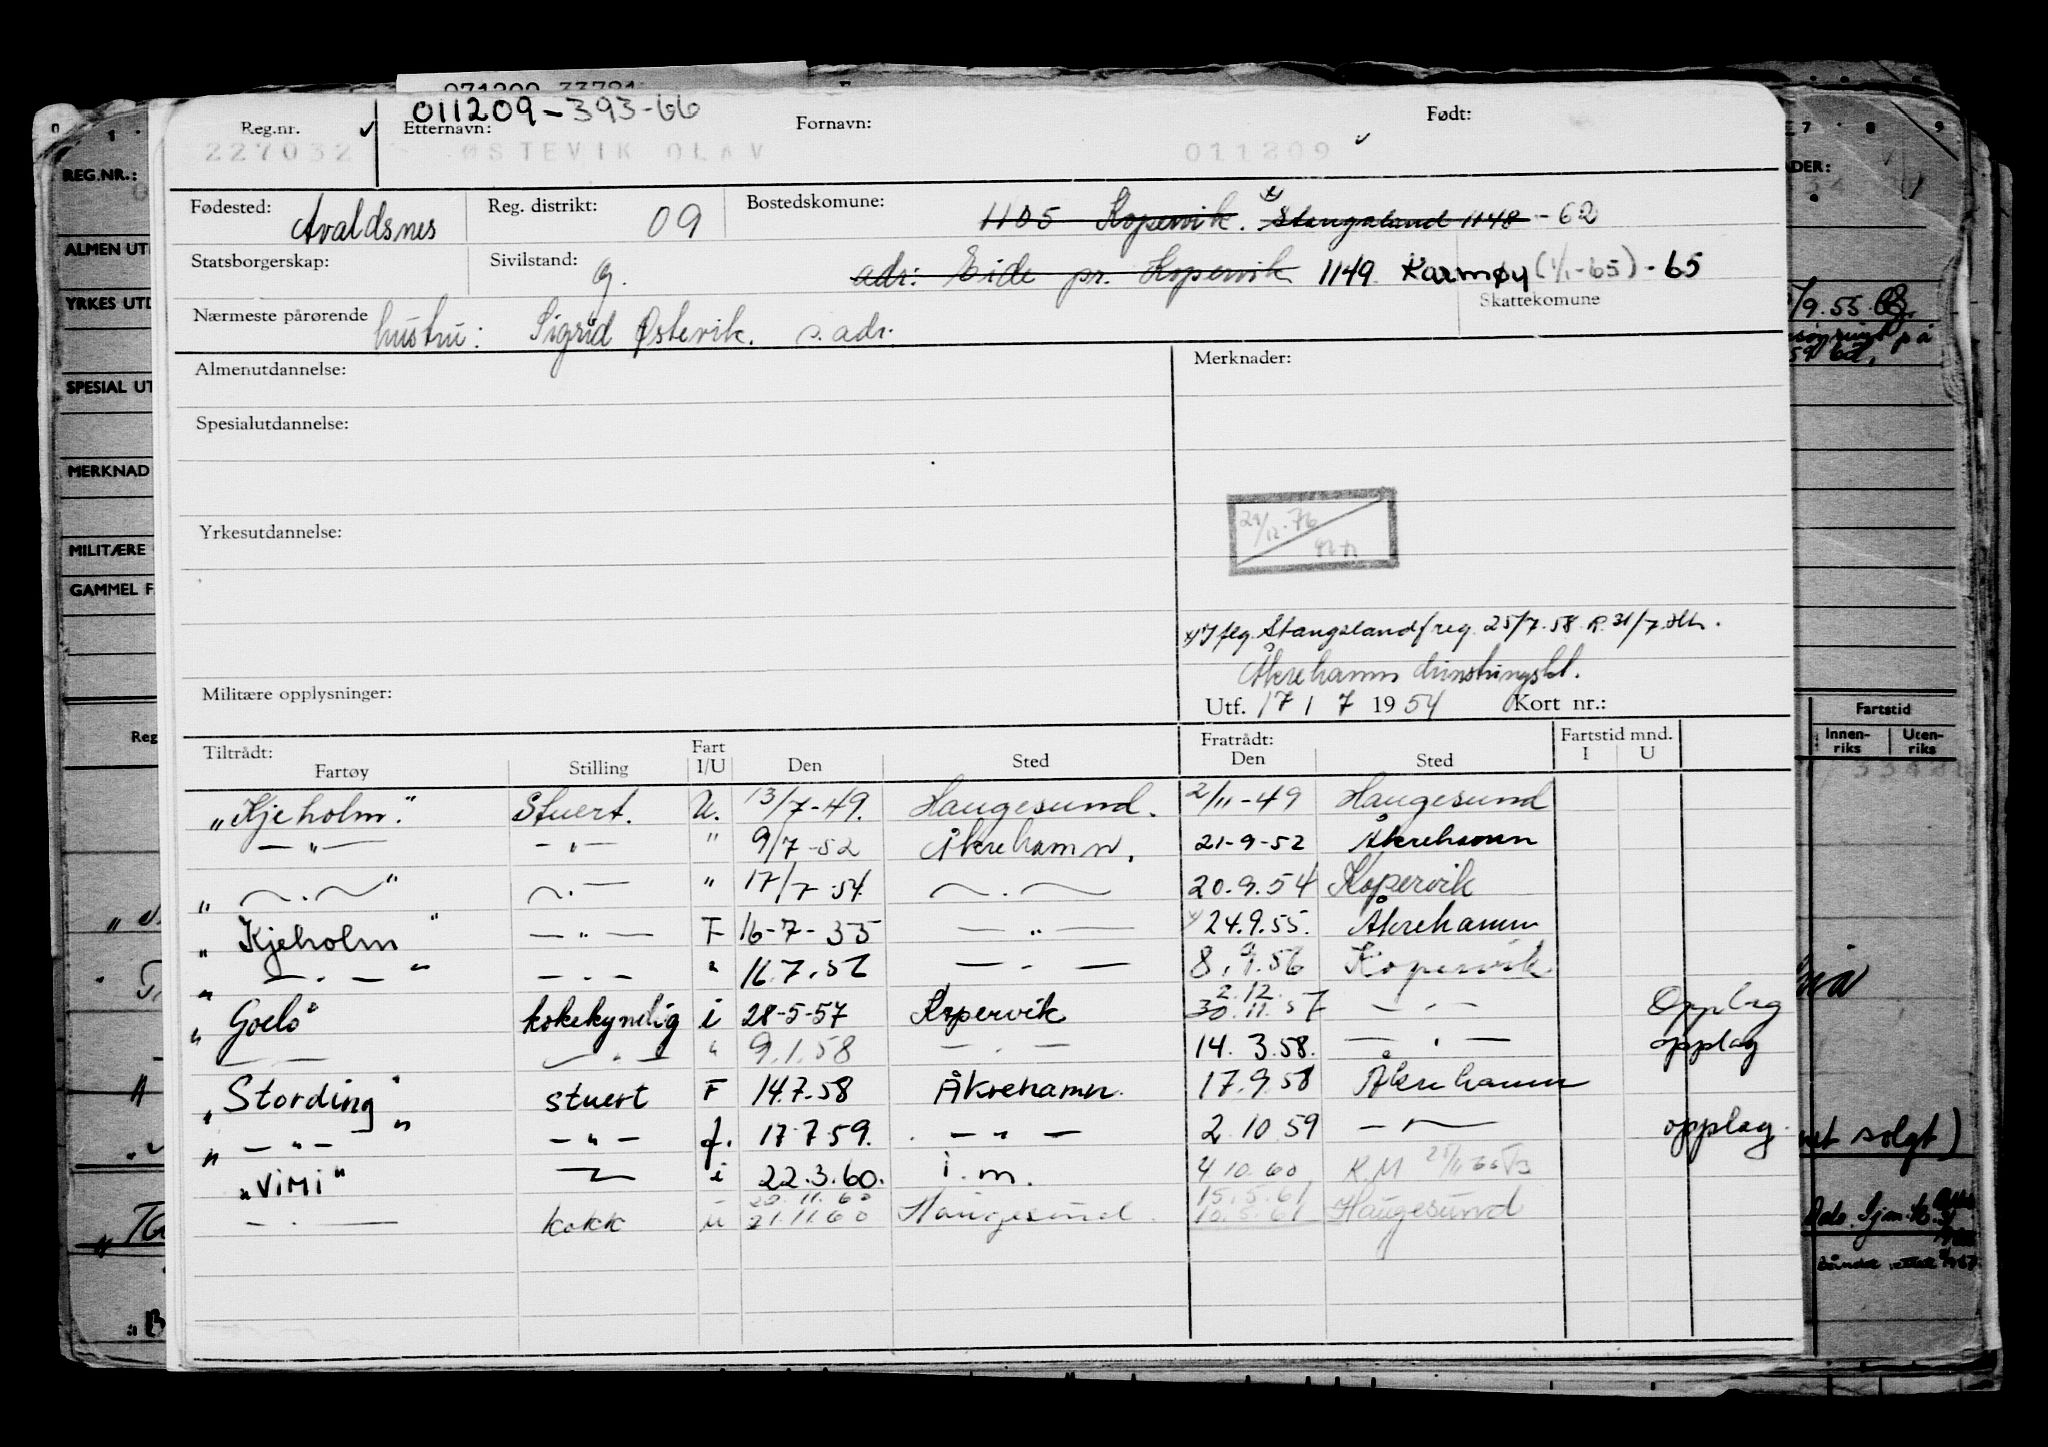 011209-393-66
Reg.nr. ✓ Etternavn: Fornavn: Født:
227032 ØSTEVIK OLAV 011209 ✓
Fødested: Avaldsnes Reg. distrikt: 09 Bostedskommune: 1105 Kopervik. x) Stangaland 1148 - 62
Statsborgerskap: Sivilstand: g. adr: Eide pr. Kopervik 1149 Karmøy (1/1-65) - 65
Skattekomune
Nærmeste pårørende hustru: Sigrid Østevik. s. adr.
Almenutdannelse: Merknader:
Spesialutdannelse:
Yrkesutdannelse:
x) Iflg. Stangaland freg. 25/7-58
Åkrehamn
Militære opplysninger: Utf. 17 / 7 1954 Kort nr.:
Tiltrådt: Fart Fratrådt: Fartstid mnd.
Fartøy Stilling I/U Den Sted Den Sted I U
"Kjeholm." Stuert. U. 13/7-49. Haugesund. 2/11-49 Haugesund
— " — — " — " 9/7-52 Åkrehamn. 21-9-52 Åkrehamn
" — . — " — . — " 17/7 54. — . — 20.9.54 Kopervik
" Kjeholm " — " — F 16-7-55 — " — 24.9.55. Åkrehamn
" — . — " — . — " 16.7.56 — . — 8.9.56 Kopervik
2.12.
" Goelo" kokekyndig i 28-5-57 Kopervik 30.11.57 — . — Opplag
— — — . — " 9.1.58 — . — 14.3.58. — . — opplag
" Stording " stuert F 14.7.58 Åkrehamn. 17.9.58 Åkrehamn
" — " — " — " — f. 17.7.59. — " — 2.10.59 — . — opplag.
"ViMi" — i 22.3.60. i.m. 4.10.60 R.M
20.11.60 15.5.61
— . — kokk u 21.11.60 Haugesund. 10.5.61 Haugesund
REG.NR.:
ALMEN UT
YRKES UTD
SPESIAL UT
MERKNAD
MILITÆRE
GAMMEL F
Reg
ADER:
/9.55
Fartstid
Innen-riks Uten-riks
solgt)